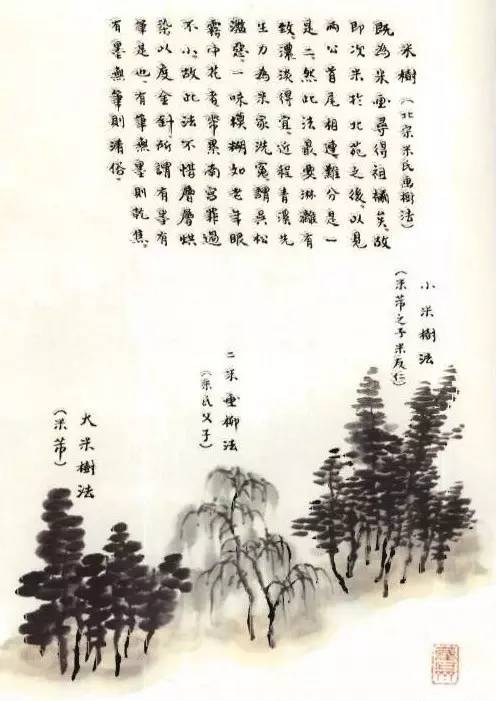 米樹（北宋米氏畫樹法）
既為米畫尋得祖禰矣。故
即次米於北苑之後，以見
兩公首尾相連難分是一
是二。然此法最要淋灕有
致，濃淡得宜。近程青溪先
生力為米家洗冤，謂吳松
濫惡，一味模糊如老年眼
霧中花看常累南宮罪過
不小。故此法不惜層層烘
染以度金針。所謂有墨有
筆是也。有筆無墨則乾焦。
有墨無筆則清俗。
小米樹法
（米芾之子米友仁）
二米畫柳法
（米氏父子）
大米樹法
（米芾）